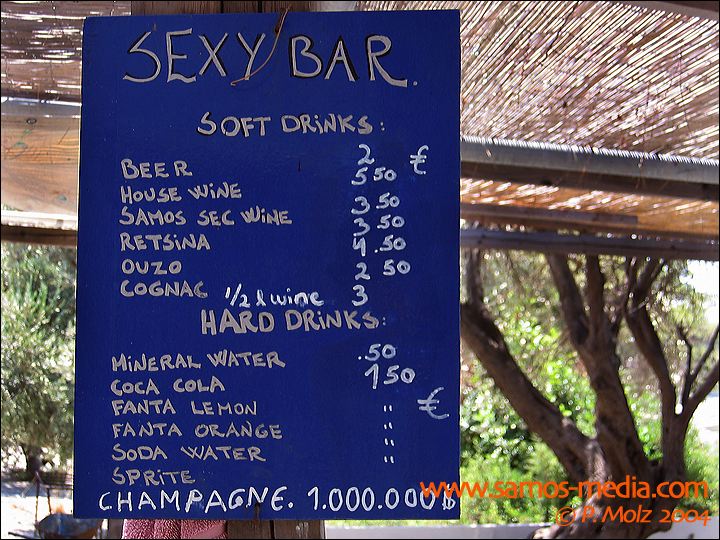 SEXY BAR.
SOFT DRiNKS:
2 €
BEER 5 50
HOUSE WiNE 3 50
SAMOS SEC WiNE 3 50
RETSiNA 4.50
OUZO 2 50
COGNAC 1/2 l wine 3
HARD DRiNKS:
MiNERAL WATER .50
COCA COLA 150
FANTA LEMON " €
FANTA ORANGE "
SODA WATER "
SPRiTE "
CHAMPAGNE. 1.000.000$
www.samos-media.com
© P. Molz 2004